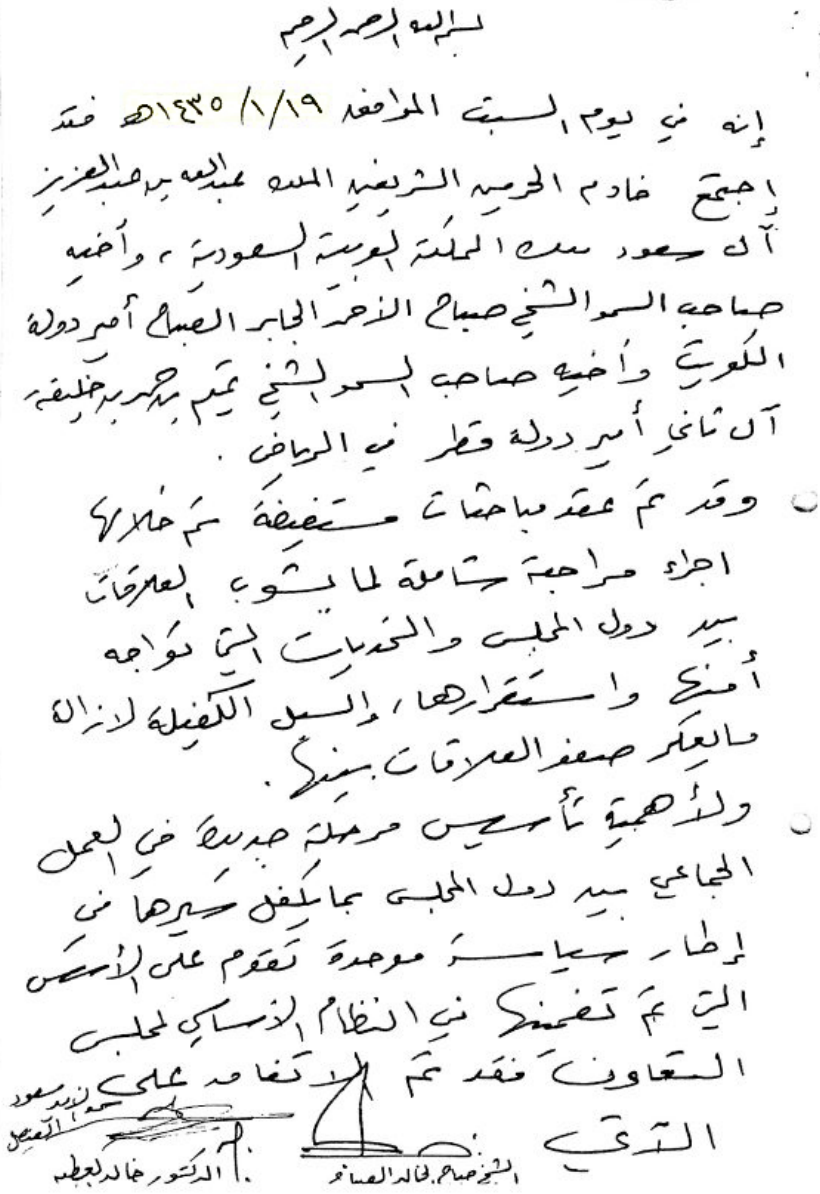 بسم الله الرحمن الرحيم
إنه في يوم السبت الموافق ١٤٣٥/١/١٩هـ فقد
إجتمع خادم الحرمين الشريفين الملك عبدالله بن عبدالعزيز
آل سعود ملك المملكة العربية السعودية، وأخيه
صاحب السمو الشيخ صباح الأحمد الجابر الصباح أمير دولة
الكويت وأخيه صاحب السمو الشيخ تميم بن حمد بن خليفة
آل ثاني أمير دولة قطر في الرياض.
وقد تم عقد مباحثات مستفيضة تم خلالها
اجراء مراجعة شاملة لما يشوب العلاقات
بين دول المجلس والتحديات التي تواجه
أمنها واستقرارها، والسبل الكفيلة لازالة
مايعكر صفو العلاقات بينها.
ولأهمية تأسيس مرحلة جديدة في العمل
الجماعي بين دول المجلس بما يكفل سيرها في
إطار سياسة موحدة تقوم على الأسس
التي تم تضمينها في النظام الأساسي لمجلس
التعاون فقد تم الاتفاق على
الآتي
سعود الفيصل
الشيخ صباح الخالد الصباح
الدكتور خالد العطية